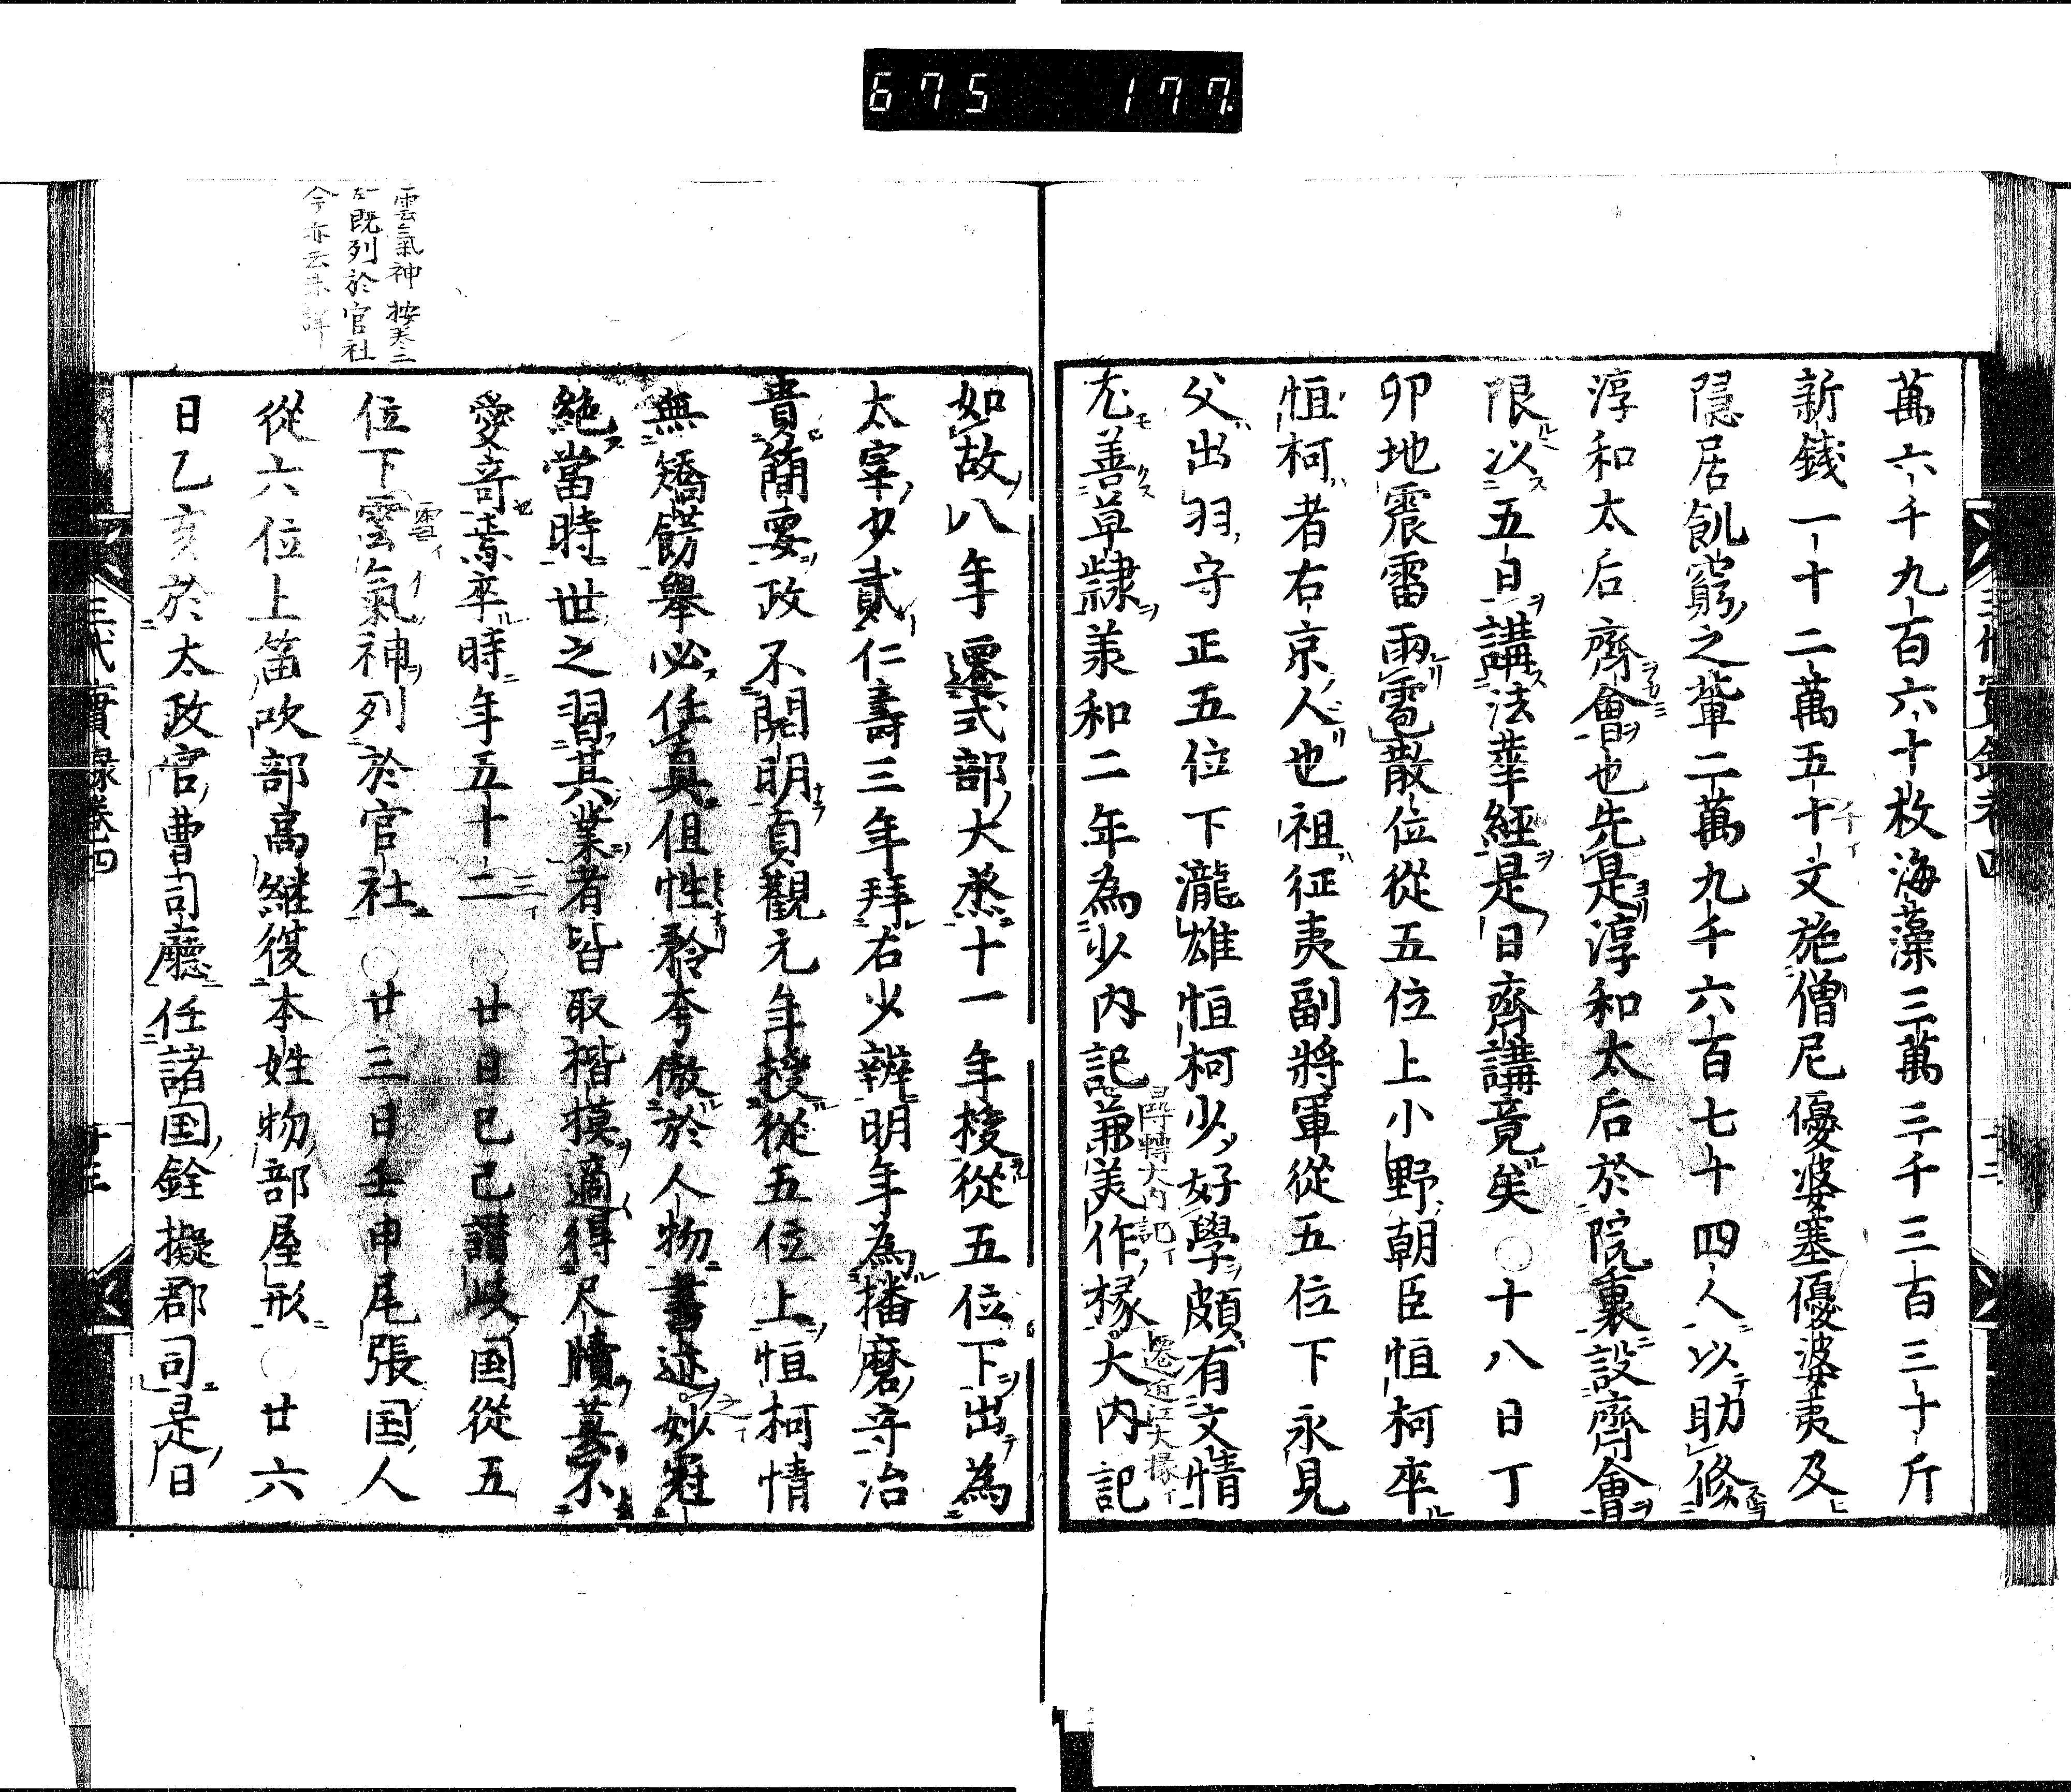 675 177.
萬六千九百六十枚海藻三萬三千三百三十斤
新錢一十二萬五十文施僧尼優婆塞優婆夷及
千イ
隱居飢窮之輩二萬九千六百七十四人以助修
淳和太后齊會也先是淳和太后於院裏設齊會
限以五日講法華經是日齊講竟矣○十八日丁
卯地震雷雨雹散位從五位上小野朝臣恒柯卒
恒柯者右京人也祖征夷副將軍從五位下永見
父出羽守正五位下瀧雄恒柯少好學頗有文情
尤善草隷羕和二年為少内記兼美作掾大内記
尋轉大内記イ
遷近江大掾イ
如故八年遷式部大丞十一年授從五位下出為
太宰少貳仁壽三年拜右少辨明年為播磨守治
貴簡要政不開明貞觀元年授從五位上恒柯情
無矯餝舉必任真但性矜夸傲於人物書迹妙冠
之イ
絶當時世之習其業者皆取楷摸適得尺牘莫不
愛奇焉卒時年五十二○廿日己巳讃岐国從五
三イ
位下雲氣神列於官社○廿三日壬申尾張国人
雲イ
從六位上笛吹部高継復本姓物部屋形○廿六
日乙亥於太政官曹司廳任諸国銓擬郡司是日
雲氣神 按卷二
左既列於官社
今亦云未詳
三代實録卷四